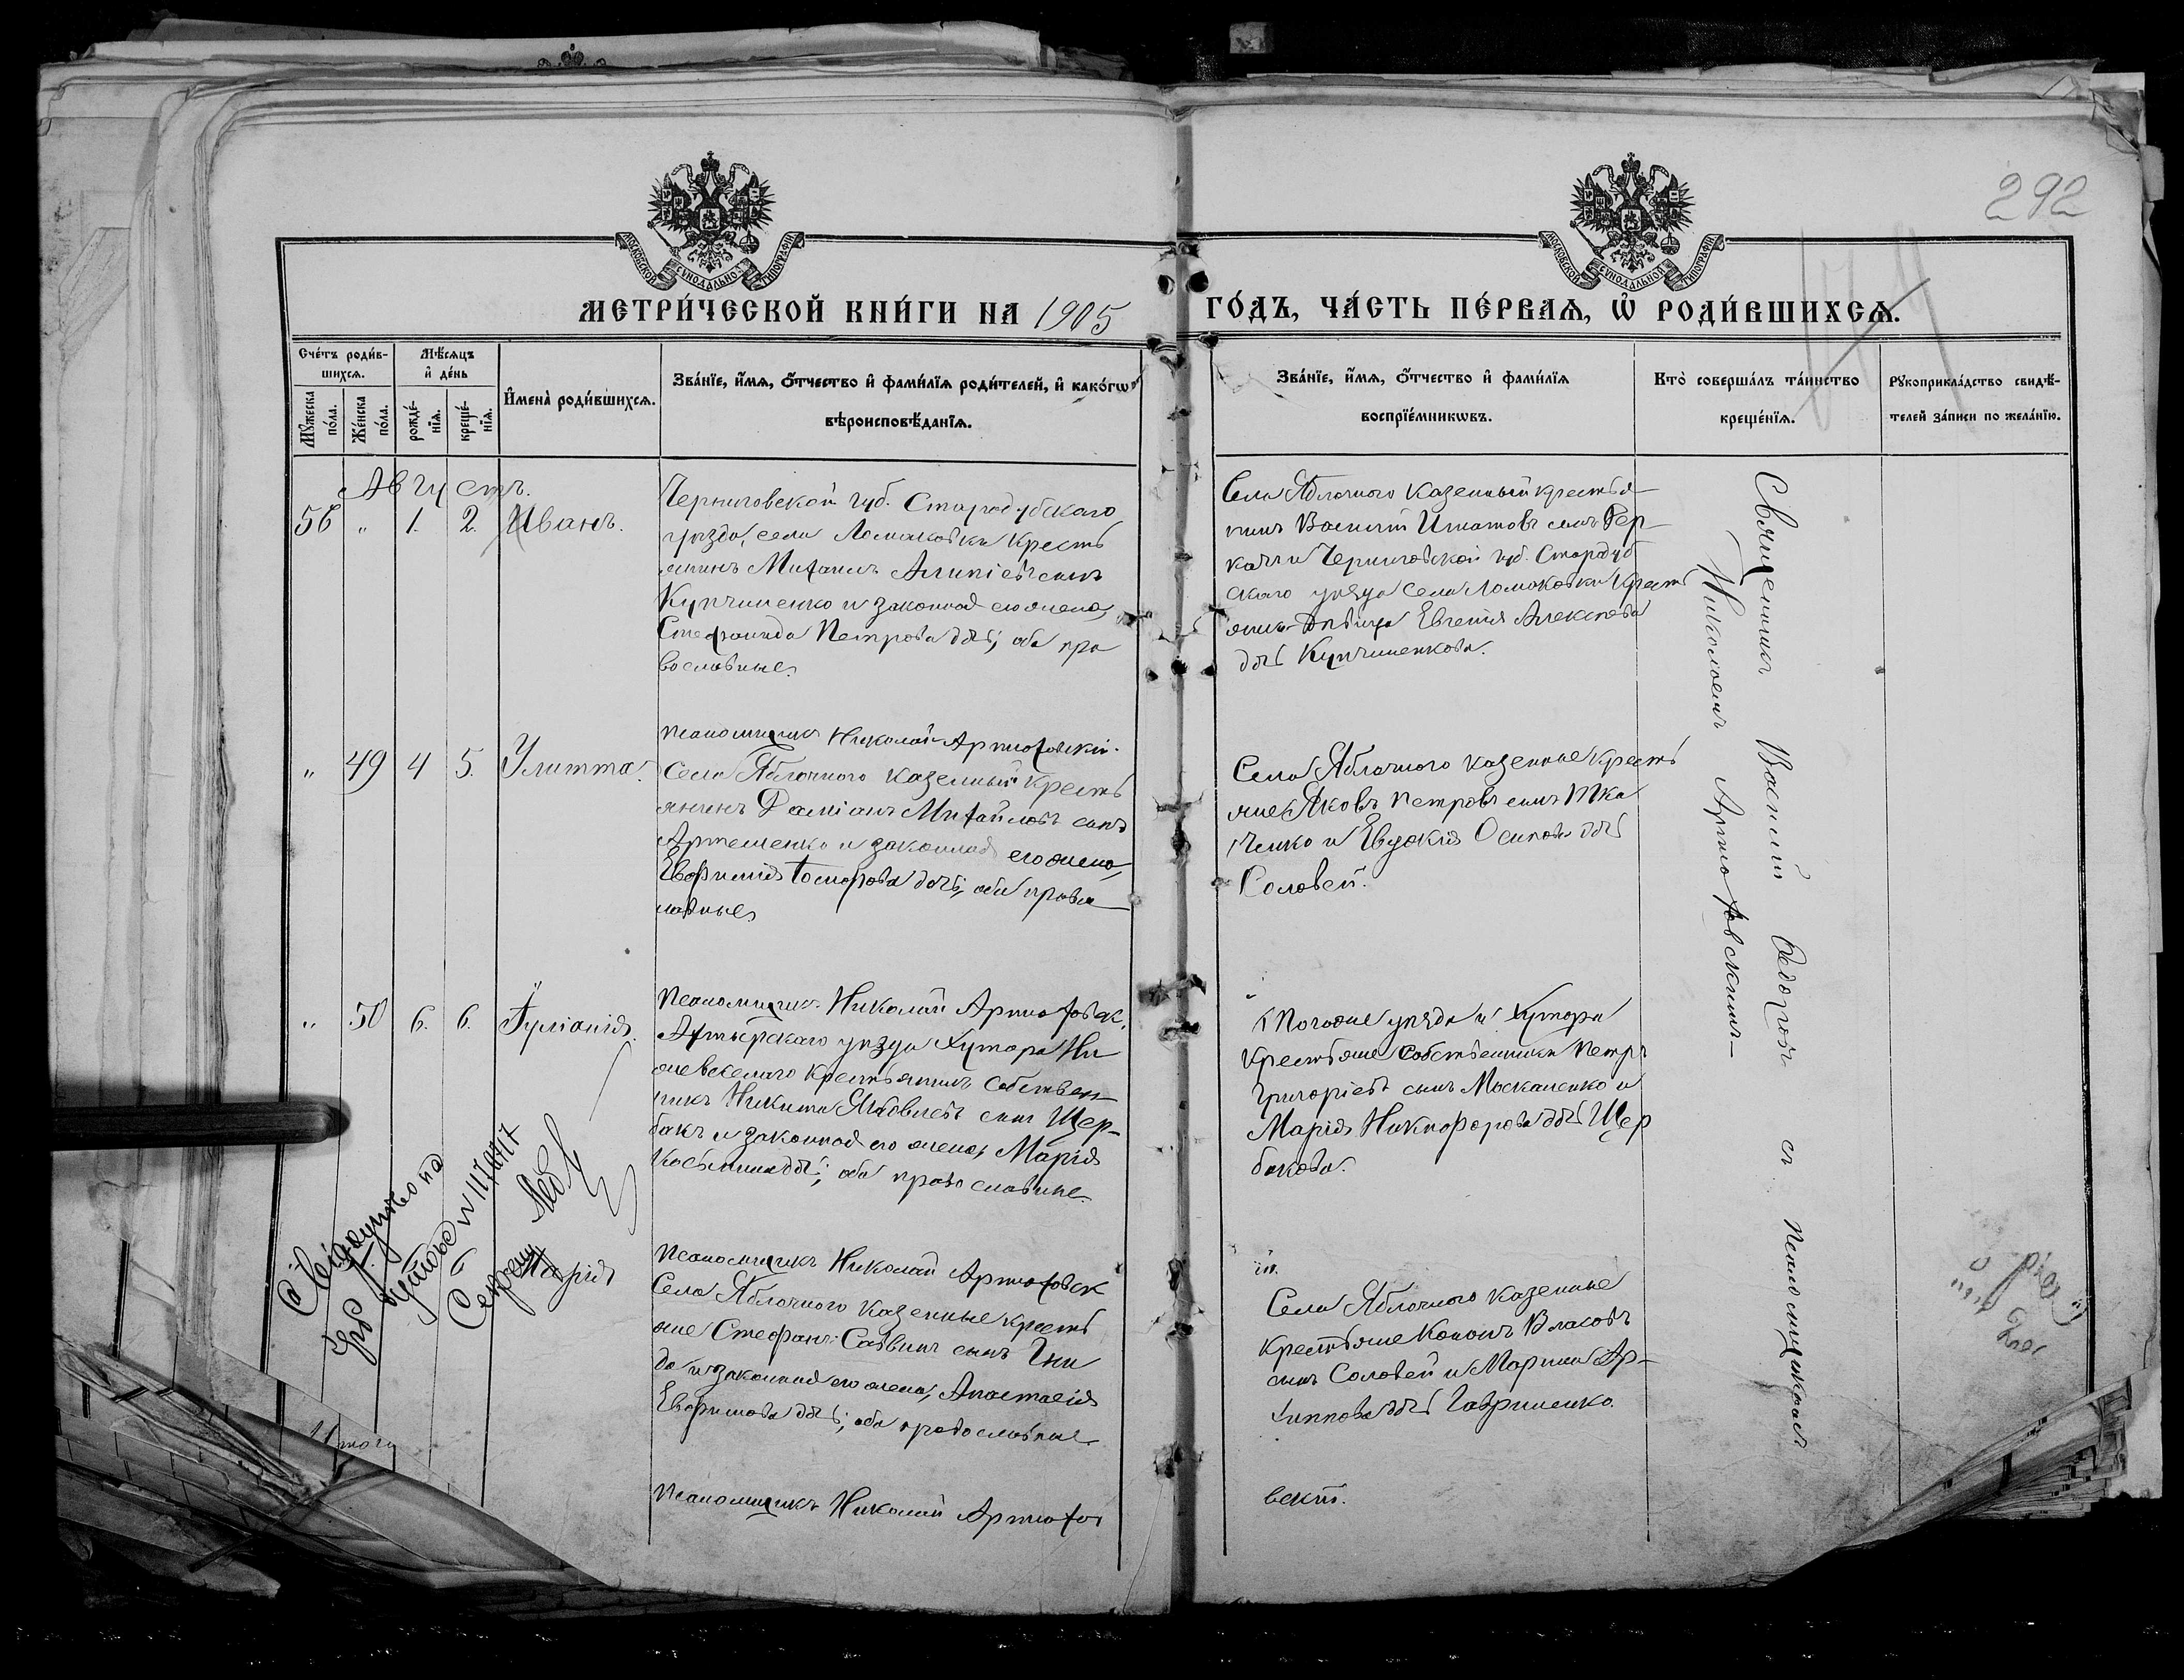 292
МОСКОВСКОЙ СѴНОДАЛЬНОЙ ТИПОГРАФІИ
МОСКОВСКОЙ СѴНОДАЛЬНОЙ ТИПОГРАФІИ
МЕТРИ́ЧЕСКОЙ КНИ́ГИ НА 1905 ГО́ДЪ, ЧА́СТЬ ПЕ́РВАѦ, Ѡ҆ РОДИ́ВШИХСѦ.
Сче́тъ роди́в-
шихсѧ.
Мꙋжеска
по́ла.
Же́нска
по́ла.
Мѣ́сѧцъ
и҆ де́нь
рожде́-
нїѧ.
креще́-
нїѧ.
И҆мена̀ роди́вшихсѧ.
Зва́нїе, и҆́мѧ, ѻ҆́тчество и҆ фами́лїѧ роди́телей, и҆ како́гѡ
вѣроисповѣ́данїѧ.
Зва́нїе, и҆́мѧ, ѻ҆́тчество и҆ фами́лїѧ
воспрїе́мникѡвъ.
Кто̀ соверша́лъ та́инство
креще́нїѧ.
Рꙋкоприкла́дство свидѣ́-
телей за́писи по жела́нїю.
Августъ.
56 " 1. 2. Иванъ.
Черниговской губ. Стародубскаго
уѣзда, села Ломаковки Кресть
янинъ Михаилъ Алипіевъ сынъ
Купчиненко и законная его жена,
Стефанида Петрова дочь; оба пра
вославные.
Села Яблочного казенный крестья-
нинъ Василій Игнатовъ сынъ Гер-
Черниговской губ. Стародуб
скаго уѣзда села Ломаковки Кресть
янка-Дѣвица Евгенія Алексѣева
дочь Купчиненкова.
Псаломщикъ Николай Артюховскій.
" 49 4 5. Улитта.
Села Яблочного казенный Кресть
янинъ Даміанъ Михайловъ сынъ
Артеменко и законная его жена,
Евфимія дочь; оба право
славные
Села Яблочного казенные Кресть
яне Яковъ Петровъ сынъ Тка
ченко и Евдокія Осипова дочь
Соловей.
Псаломщикъ Николай Артюховск
ій.
" 50 6. 6. Іуліанія.
Ахтырскаго уѣзда Хутора
крестьянинъ собствен-
никъ Никита Яковлевъ сынъ Щер-
бакъ и законная его жена, Марія
Косьмина дочь; оба православные.
Того же уѣзда и Хутора
Крестьяне собственники Петръ
Григоріевъ сынъ Москаленко и
Марія Никифорова дочь Щер
бакова.
Псаломщикъ Николай Артюховск
ій.
Марія
Села Яблочного казенные кресть
яне Стефанъ Саввинъ сынъ Гни
да и законная его жена, Анастасія
Евфимова дочь; оба православные.
Села Яблочного казенные
крестьяне Кононъ Власовъ
сынъ Соловей и Марина Ар-
хиппова дочь Гавриленко.
Псаломщикъ Николай Артюхов
скій.
Священникъ Василій Ѳедоровъ съ Псаломщикомъ
Николаемъ Артюховскимъ.
Итого